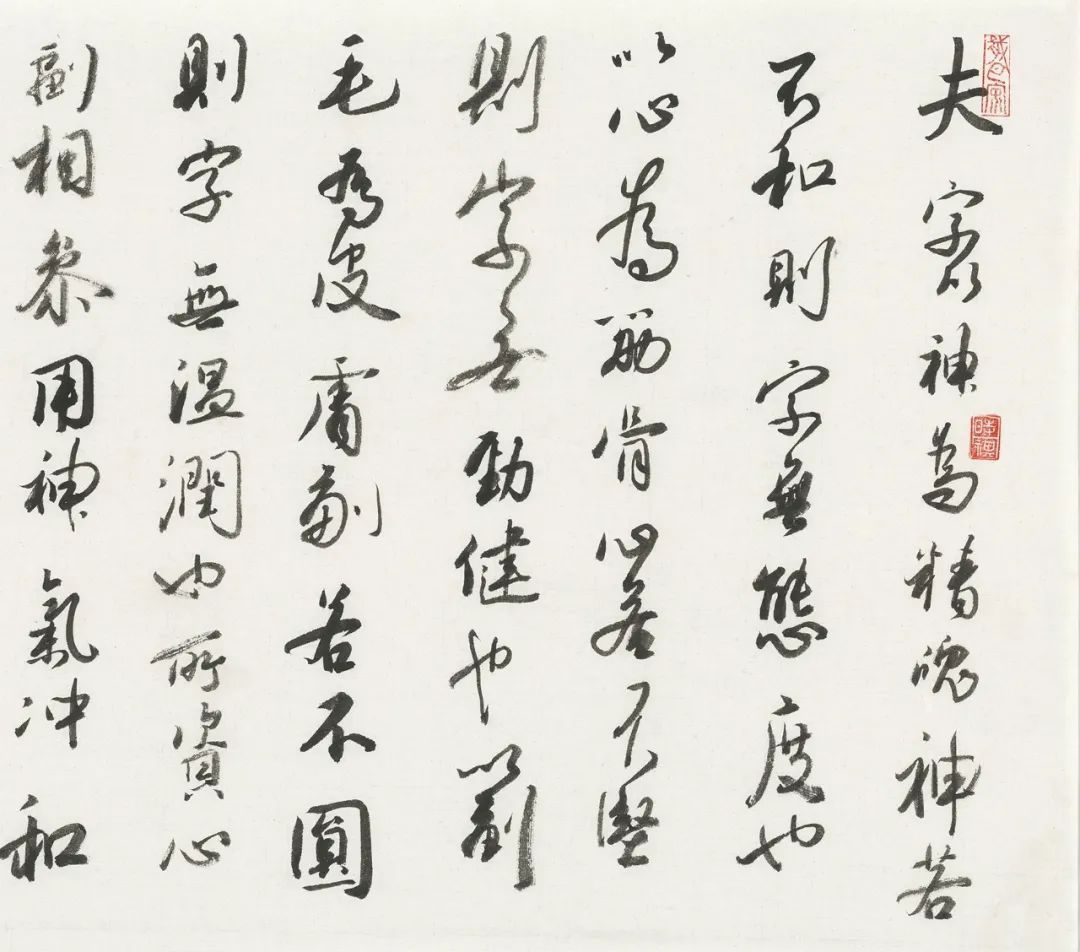 夫字以神為精魄神若
不和則字無態度也
以心為筋骨心若不堅
則字無勁健也以副
毛為皮膚副若不圓
則字無溫潤也所資心
副相參用神氣沖和